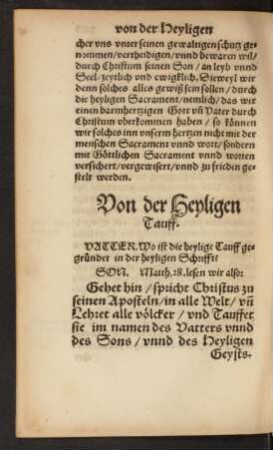 von der Heyligen
cher vns vnter seinen gewaltigen schutz ge-
nommen/vertheidigen/vnnd bewaren wil/
durch Christum seinen Son/an leyb vnnd
Seel/zeytlich vnd ewigklich. Dieweyl wir
denn solches alles gewiß sein sollen/durch
die heyligen Sacrament/nemlich/das wir
einen barmhertzigen Gott vñ Vater durch
Christum vberkommen haben/so können
wir solches inn vnserm hertzen nicht mit der
menschen Sacrament vnnd wort/sondern
mit Göttlichen Sacrament vnnd worten
versichert/vergewisert/vnnd zu frieden ge-
stelt werden.
Von der Heyligen
Tauff.
VATTER. Wo ist die heylige Tauff ge-
gründet in der heyligen Schrifft?
SON. Matth. 28. lesen wir also:
Gehet hin/spricht Christus zu
seinen Aposteln/in alle Welt/vñ
Lehret alle völcker/vnd Tauffet
sie im namen des Vatters vnnd
des Sons/vnnd des Heyligen
Geysts.